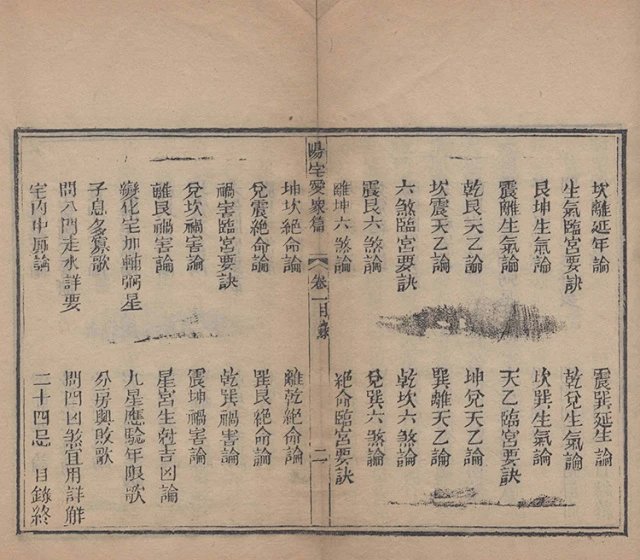 坎離延年論 震巽延生論
生氣臨宮要訣 乾兌生氣論
艮坤生氣論 坎巽生氣論
震離生氣論 天乙臨宮要訣
乾艮天乙論 坤兌天乙論
坎震天乙論 巽離天乙論
六煞臨宮要訣 乾坎六煞論
震艮六煞論 兌巽六煞論
離坤六煞論 絕命臨宮要訣
陽宅愛衆篇 卷一目錄 二
坤坎絕命論 離乾絕命論
兌震絕命論 巽艮絕命論
禍害臨宮要訣 乾巽禍害論
兌坎禍害論 震坤禍害論
離艮禍害論 星宮生尅吉凶論
變化宅加輔弼星 九星應驗年限歌
子息多寡歌 分房興敗歌
問八門走水詳要 問四凶煞宜用詳觧
宅內中風論 二十四忌 目錄終